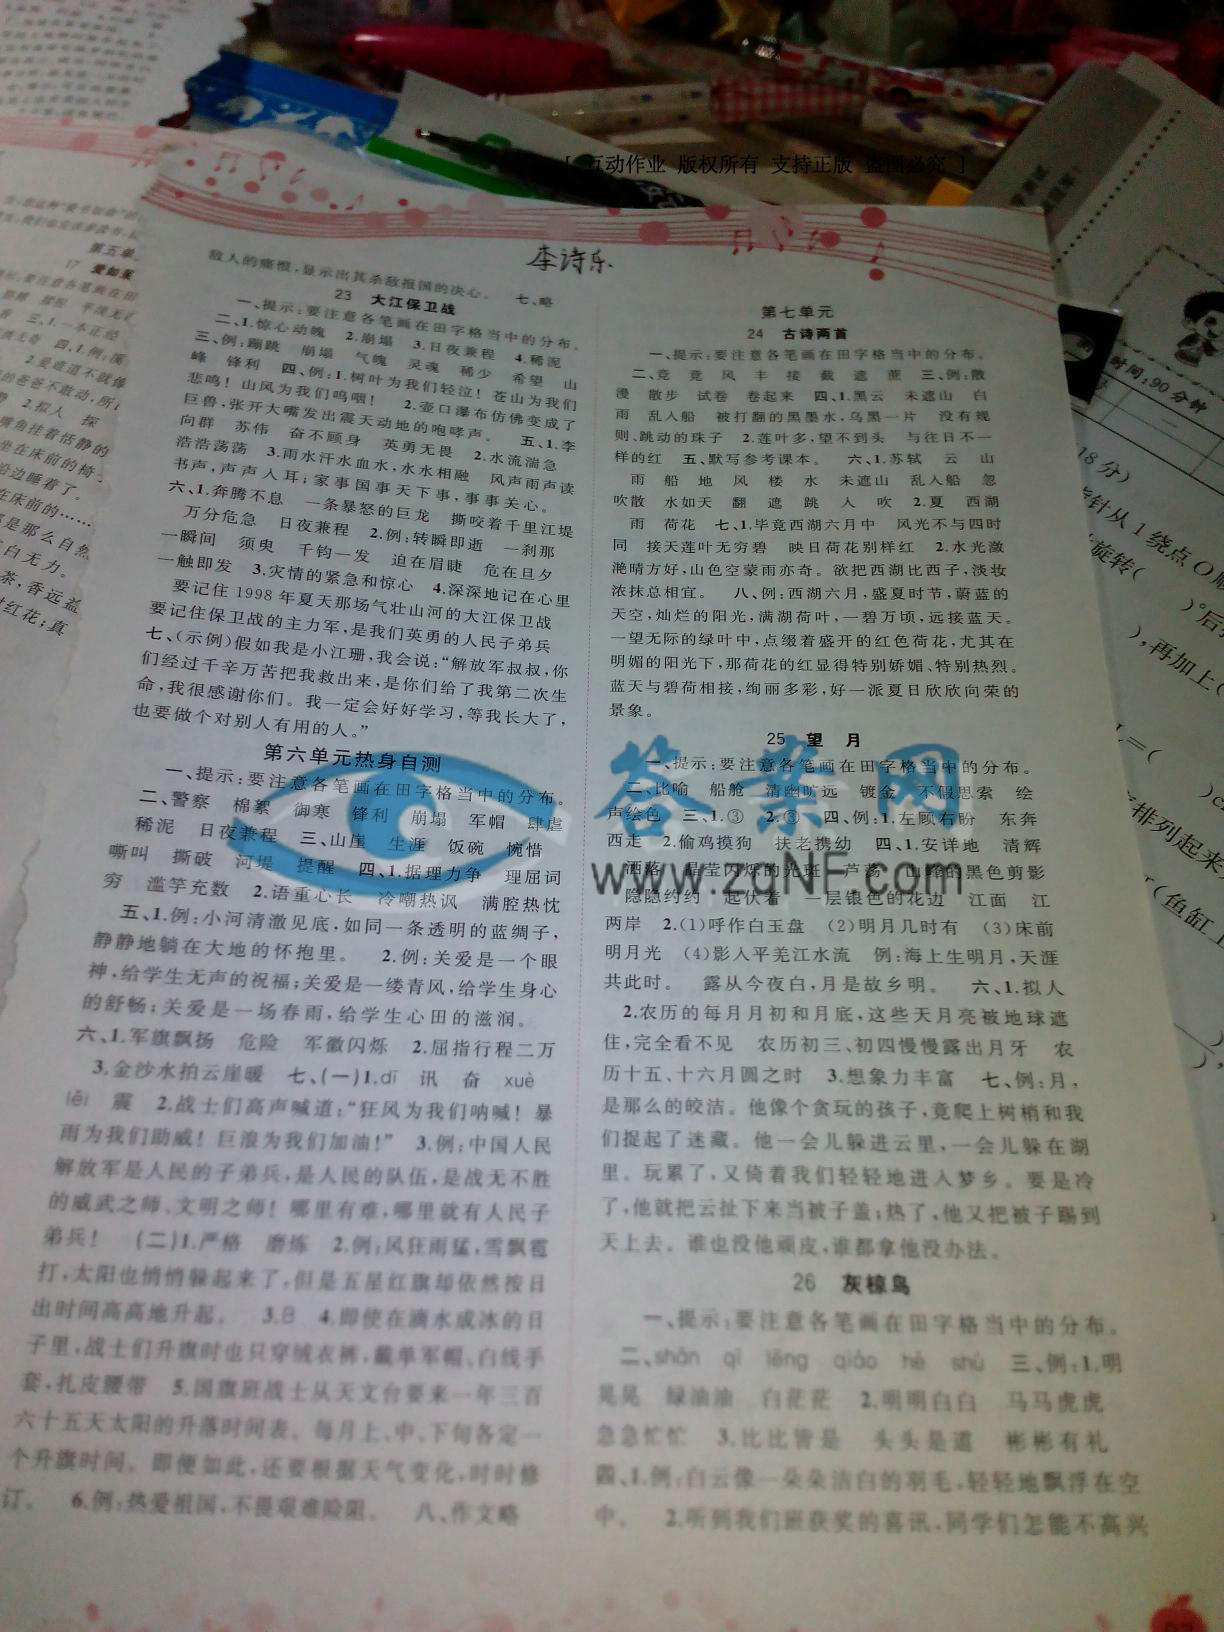 [ 互动作业 版权所有 支持正版 盗图必究 ]
李诗乐
敌人的痛恨,显示出其杀敌报国的决心。 七、略
23 大江保卫战
一、提示:要注意各笔画在田字格当中的分布。
二、1.惊心动魄 2.崩塌 3.日夜兼程 4.稀泥
三、例:蹦跳 崩塌 气魄 灵魂 稀少 希望 山
峰 锋利 四、例:1.树叶为我们轻泣!苍山为我们
悲鸣!山风为我们呜咽! 2.壶口瀑布仿佛变成了
巨兽,张开大嘴发出震天动地的咆哮声。 五、1.李
向群 苏伟 奋不顾身 英勇无畏 2.水流湍急
浩浩荡荡 3.雨水汗水血水,水水相融 风声雨声读
书声,声声入耳;家事国事天下事,事事关心。
六、1.奔腾不息 一条暴怒的巨龙 撕咬着千里江堤
万分危急 日夜兼程 2.例:转瞬即逝 一刹那
一瞬间 须臾 千钧一发 迫在眉睫 危在旦夕
一触即发 3.灾情的紧急和惊心 4.深深地记在心里
要记住1998年夏天那场气壮山河的大江保卫战
要记住保卫战的主力军,是我们英勇的人民子弟兵
七、(示例)假如我是小江珊,我会说:“解放军叔叔,你
们经过千辛万苦把我救出来,是你们给了我第二次生
命,我很感谢你们。我一定会好好学习,等我长大了,
也要做个对别人有用的人。”
第六单元热身自测
一、提示:要注意各笔画在田字格当中的分布。
二、警察 棉絮 御寒 锋利 崩塌 军帽 肆虐
稀泥 日夜兼程 三、山崖 生涯 饭碗 惋惜
嘶叫 撕破 河堤 提醒 四、1.据理力争 理屈词
穷 滥竽充数 2.语重心长 冷嘲热讽 满腔热忱
五、1.例:小河清澈见底,如同一条透明的蓝绸子,
静静地躺在大地的怀抱里。 2.例:关爱是一个眼
神,给学生无声的祝福;关爱是一缕青风,给学生身心
的舒畅;关爱是一场春雨,给学生心田的滋润。
六、1.军旗飘扬 危险 军徽闪烁 2.屈指行程二万
3.金沙水拍云崖暖 七、(一)1.dī 讯 奋 xuè
lěi 震 2.战士们高声喊道:“狂风为我们呐喊!暴
雨为我们助威!巨浪为我们加油!” 3.例:中国人民
解放军是人民的子弟兵,是人民的队伍,是战无不胜
的威武之师、文明之师!哪里有难,哪里就有人民子
弟兵! (二)1.严格 磨炼 2.例:风狂雨猛,雪飘雹
打,太阳也悄悄躲起来了,但是五星红旗却依然按日
出时间高高地升起。 3.B 4.即使在滴水成冰的日
子里,战士们升旗时也只穿绒衣裤,戴单军帽、白线手
套,扎皮腰带 5.国旗班战士从天文台要来一年三百
六十五天太阳的升落时间表。每月上、中、下旬各定一
个升旗时间。即便如此,还要根据天气变化,时时修
订。 6.例:热爱祖国,不畏艰难险阻。 八、作文略
第七单元
24 古诗两首
一、提示:要注意各笔画在田字格当中的分布。
二、竞 竟 风 丰 接 截 遮 蔗 三、例:散
漫 散步 试卷 卷起来 四、1.黑云 未遮山 白
雨 乱入船 被打翻的黑墨水,乌黑一片 没有规
则、跳动的珠子 2.莲叶多,望不到头 与往日不一
样的红 五、默写参考课本。 六、1.苏轼 云 山
雨 船 地 风 楼 水 未遮山 乱入船 忽
吹散 水如天 翻 遮 跳 人 吹 2.夏 西湖
雨 荷花 七、1.毕竟西湖六月中 风光不与四时
同 接天莲叶无穷碧 映日荷花别样红 2.水光潋
滟晴方好,山色空蒙雨亦奇。欲把西湖比西子,淡妆
浓抹总相宜。 八、例:西湖六月,盛夏时节,蔚蓝的
天空,灿烂的阳光,满湖荷叶,一碧万顷,远接蓝天。
一望无际的绿叶中,点缀着盛开的红色荷花,尤其在
明媚的阳光下,那荷花的红显得特别娇媚、特别热烈。
蓝天与碧荷相接,绚丽多彩,好一派夏日欣欣向荣的
景象。
25 望 月
一、提示:要注意各笔画在田字格当中的分布。
二、比喻 船舱 清幽旷远 镀金 不假思索 绘
声绘色 三、1.③ 2.③ 四、例:1.左顾右盼 东奔
西走 2.偷鸡摸狗 扶老携幼 四、1.安详地 清辉
洒落 晶莹闪烁的光斑 芦荡 山峰的黑色剪影
隐隐约约 起伏着 一层银色的花边 江面 江
两岸 2.(1)呼作白玉盘 (2)明月几时有 (3)床前
明月光 (4)影入平羌江水流 例:海上生明月,天涯
共此时。 露从今夜白,月是故乡明。 六、1.拟人
2.农历的每月月初和月底,这些天月亮被地球遮
住,完全看不见 农历初三、初四慢慢露出月牙 农
历十五、十六月圆之时 3.想象力丰富 七、例:月,
是那么的皎洁。他像个贪玩的孩子,竟爬上树梢和我
们捉起了迷藏。他一会儿躲进云里,一会儿躲在湖
里。玩累了,又倚着我们轻轻地进入梦乡。要是冷
了,他就把云扯下来当被子盖;热了,他又把被子踢到
天上去。谁也没他顽皮,谁都拿他没办法。
26 灰椋鸟
一、提示:要注意各笔画在田字格当中的分布。
二、shān qī lěng qiáo hè shù 三、例:1.明
晃晃 绿油油 白茫茫 2.明明白白 马马虎虎
急急忙忙 3.比比皆是 头头是道 彬彬有礼
四、1.例:白云像一朵朵洁白的羽毛,轻轻地飘浮在空
中。 2.听到我们班获奖的喜讯,同学们怎能不高兴
答案网
www.zqNF.com
第五单
时间:90分钟
18分)
指针从1绕点O顺
旋转(
)°后
),再加上(
排列起来
(鱼缸上